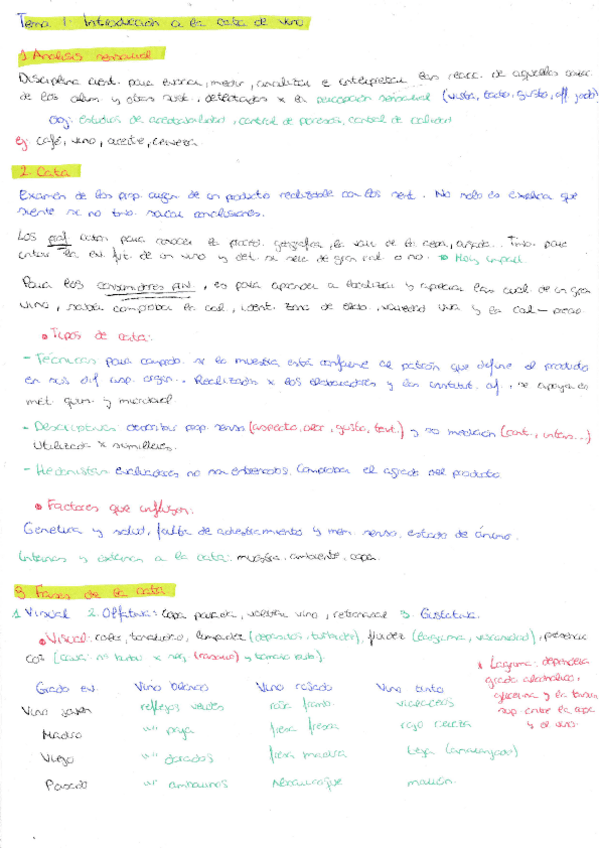 Tema 1: Introducción a la cata de vino
1. Análisis sensorial
Disciplina cient. para evocar, medir, analizar e interpretar las reacc. de aquellas caract.
de los alim. y otras sust. detectados x la percepción sensorial (vista, tacto, gusto, olf, oído)
Obj: estudios de aceptabilidad, control de procesos, control de calidad
ej: café, vino, aceite, cerveza.
2. Cata
Examen de las prop. organ. de un producto realizable con los sent. No solo es explicar que
siente si no tmb. sacar conclusiones.
Los prof. catan para conocer la proced. geográfica, la var. de la cepa, añada.. Tmb. para
la ev. fut. de un vino y det. si será de gran cal. o no.
Para los consumidores fin., es para aprender a localizar y apreciar las cual. de un gran
vino, saber comprobar la cal, ident. zona de elab, variedad uva y la cal-precio
Tipos de cata:
- Técnicas para comprob. si la muestra está conforme al patrón que define el producto
en sus dif. insp. organ.. Realizados x los elaboradores y las institut. of., se apoya en
mét. quím. y microbiol
- Descriptivas describir prop. senso (aspecto, olor, gusto, text.) y su medición (cant., intens...)
Utilizada x sumilleres.
- Hedonistas evaluadores no son entrenados. Comprobar el agrado del producto
Factores que influyen:
Genética y salud, falta de adiestramiento y mem. senso, estado de ánimo.
Internos y externos a la cata: muestra, ambiente, copa
3 Fases de la cata
1. Visual 2. Olfativa: copa parada, voltear vino, retronasal 3. Gustativa.
Visual: color, tonalidad, limpidez (depósitos, turbidez), fluidez (lágrima, viscosidad), presencia
CO2 (cava: nº burbu x seg (rosario) y tamaño burb).
Lágrima: dependerá
grado alcohólico,
glicerina y la tensión
sup. entre la copa
y el vino.
Grado ev. Vino blanco Vino rosado Vino tinto
Vino joven reflejos verdes rosa framb. violáceos
Maduro "" paja fresa fresca rojo cereza
Viejo "" dorados fresa madura teja (anaranjado)
Pasado "" ambarinos marrón.